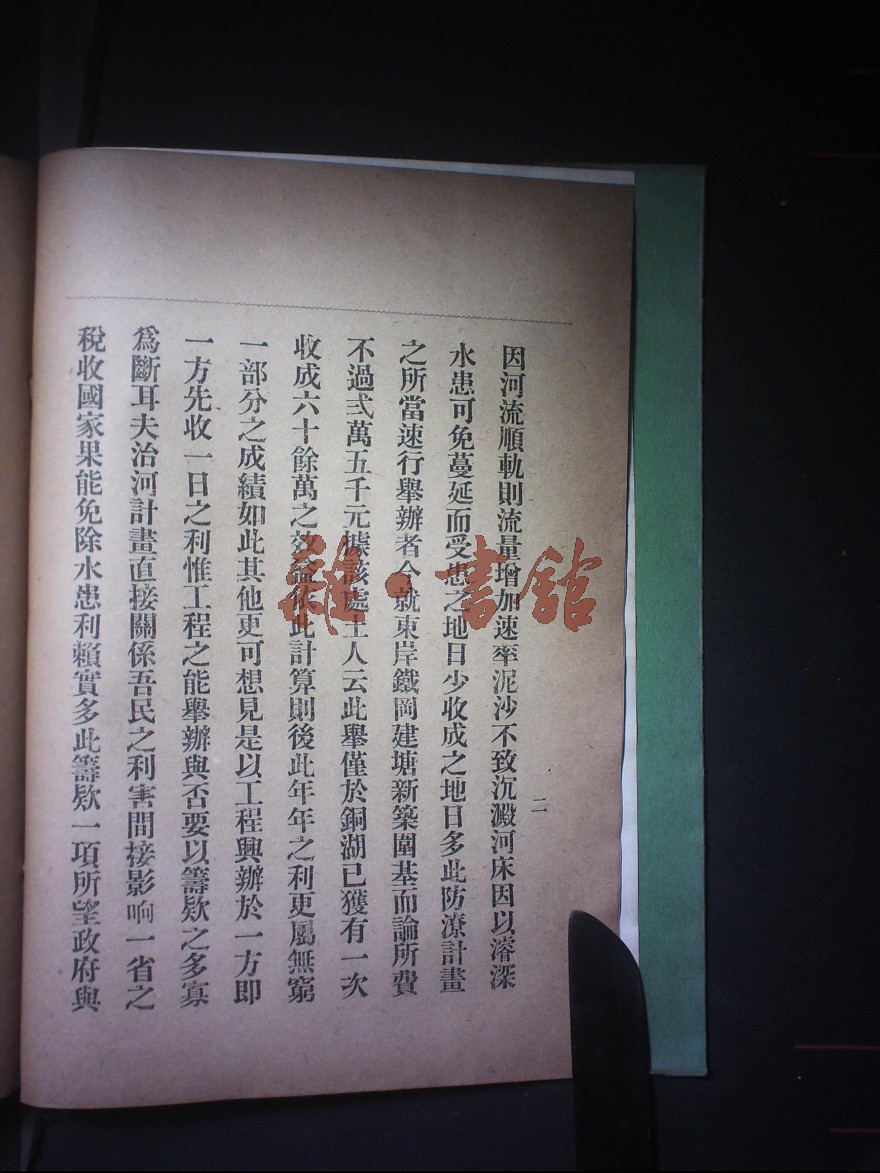 二
因河流順軌則流量增加速率泥沙不致沉澱河床因以濬深
水患可免蔓延而受患之地日少收成之地日多此防潦計畫
之所當速行舉辦者今就東岸鐵岡建塘新築圍基而論所費
不過弍萬五千元據該處土人云此舉僅於銅湖已獲有一次
收成六十餘萬之效益依此計算則後此年年之利更屬無窮
一部分之成績如此其他更可想見是以工程興辦於一方即
一方先收一日之利惟工程之能舉辦與否要以籌欵之多寡
爲斷耳夫治河計畫直接關係吾民之利害間接影响一省之
稅收國家果能免除水患利賴實多此籌欵一項所望政府與
雜·書館